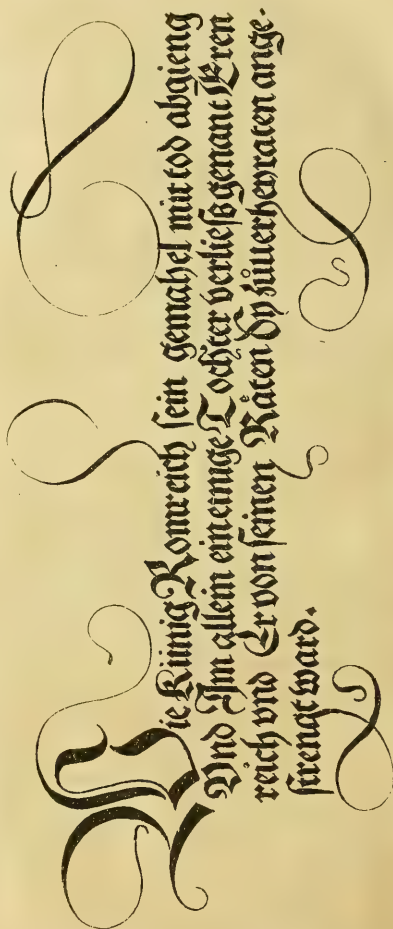 Wie Künig Romreich sein gemahel mit tod abgieng
Vnd Im allein ein einige Tochter verließ genant Ernn
reich vnd Er von seinen Räten dy zuuerheyraten ange-
strengt ward.